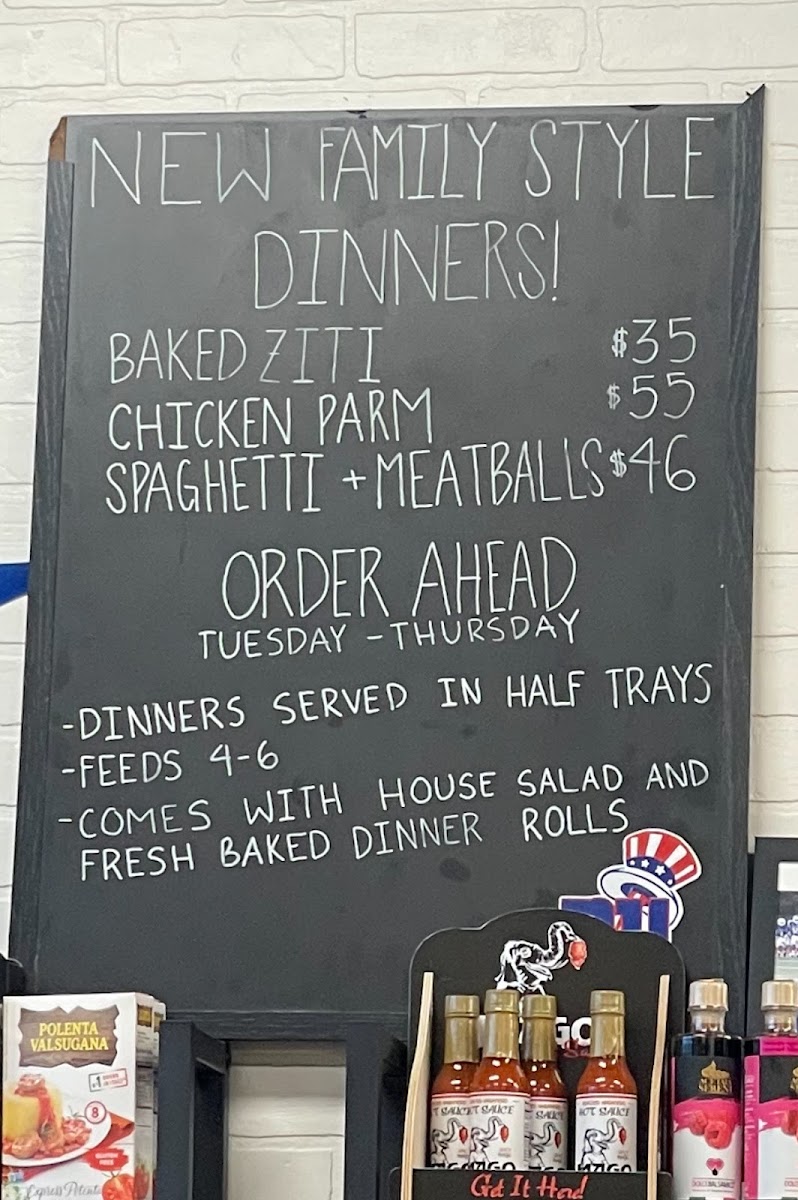 NEW FAMILY STYLE
DINNERS!
BAKED ZITI $35
CHICKEN PARM $55
SPAGHETTI + MEATBALLS $46
ORDER AHEAD
TUESDAY - THURSDAY
-DINNERS SERVED IN HALF TRAYS
-FEEDS 4-6
-COMES WITH HOUSE SALAD AND
FRESH BAKED DINNER ROLLS
POLENTA
VALSUGANA
8
Express Polenta
HOT SAUCE
Get It Hard